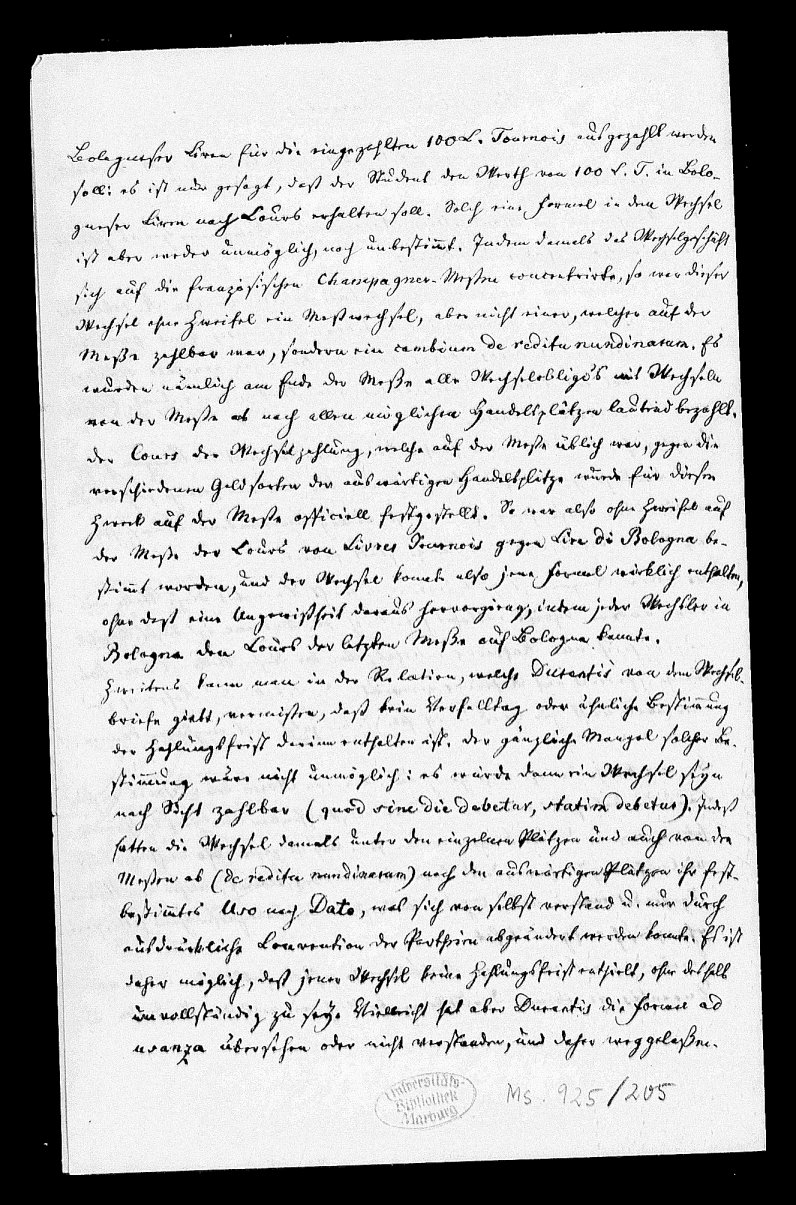 Bologneser Liren für die eingezahlten 100 L. Tournois ausgezahlt werden
soll: es ist nur gesagt, daß der Student den Werth von 100 L. T. in Bolo-
gneser Liren nach Cours erhalten soll. Solch eine Formel in dem Wechsel
ist aber weder unmöglich, noch unbestim̄t. Indem damals das Wechselgeschäft
sich auf die französischen Champagner-Messen concentrirte, so war dieser
Wechsel ohne Zweifel ein Meßwechsel, aber nicht einer, welcher auf der
Meße zahlbar war, sondern ein cambium de reditu nundinarum. Es
wurden nämlich am Ende der Meße alle Wechselobligo's mit Wechseln
von der Meße ab nach allen möglichen Handelsplätzen lautend bezahlt.
Der Cours der Wechselzahlung, welche auf der Meße üblich war, gegen die
verschiedenen Geldsorten der auswärtigen Handelsplätze wurde für diesen
Zweck auf der Meße officiell festgestellt. So war also ohne Zweifel auf
der Meße der Cours von Livres Tournois gegen Lire di Bologna be-
stim̄t worden, und der Wechsel konnte also jene Formel wirklich enthalten,
ohne daß eine Ungewißheit daraus hervorgieng, indem jeder Wechsler in
Bologna den Cours der letzten Meße auf Bologna kannte.
Zweitens kann man in der Relation, welche Durantis von dem Wechsel-
briefe giebt, vermissen, daß kein Verfalltag oder ähnliche Bestim̄ung
der Zahlungsfrist darinn enthalten ist. Der gänzliche Mangel solcher Be-
stim̄ung wäre nicht unmöglich: es würde dann ein Wechsel seyn
nach Sicht zahlbar (quod sine die debetur, statim debetur). Indeß
hatten die Wechsel damals unter den einzelnen Plätzen und auch von den
Messen ab (de reditu nundinarum) nach den auswärtigen Plätzen ihr fest-
bestim̄tes Uso nach Dato, was sich von selbst verstand u. nur durch
ausdrückliche Convention der Partheien abgeändert werden konnte. Es ist
daher möglich, daß jener Wechsel keine Zahlungsfrist enthielt, ohne deshalb
unvollständig zu seyn. Vielleicht hat aber Durantis die Formel ad
usanza übersehen oder nicht verstanden, und daher weggelaßen.
Universitäts-
Bibliothek
Marburg
Ms. 925/205